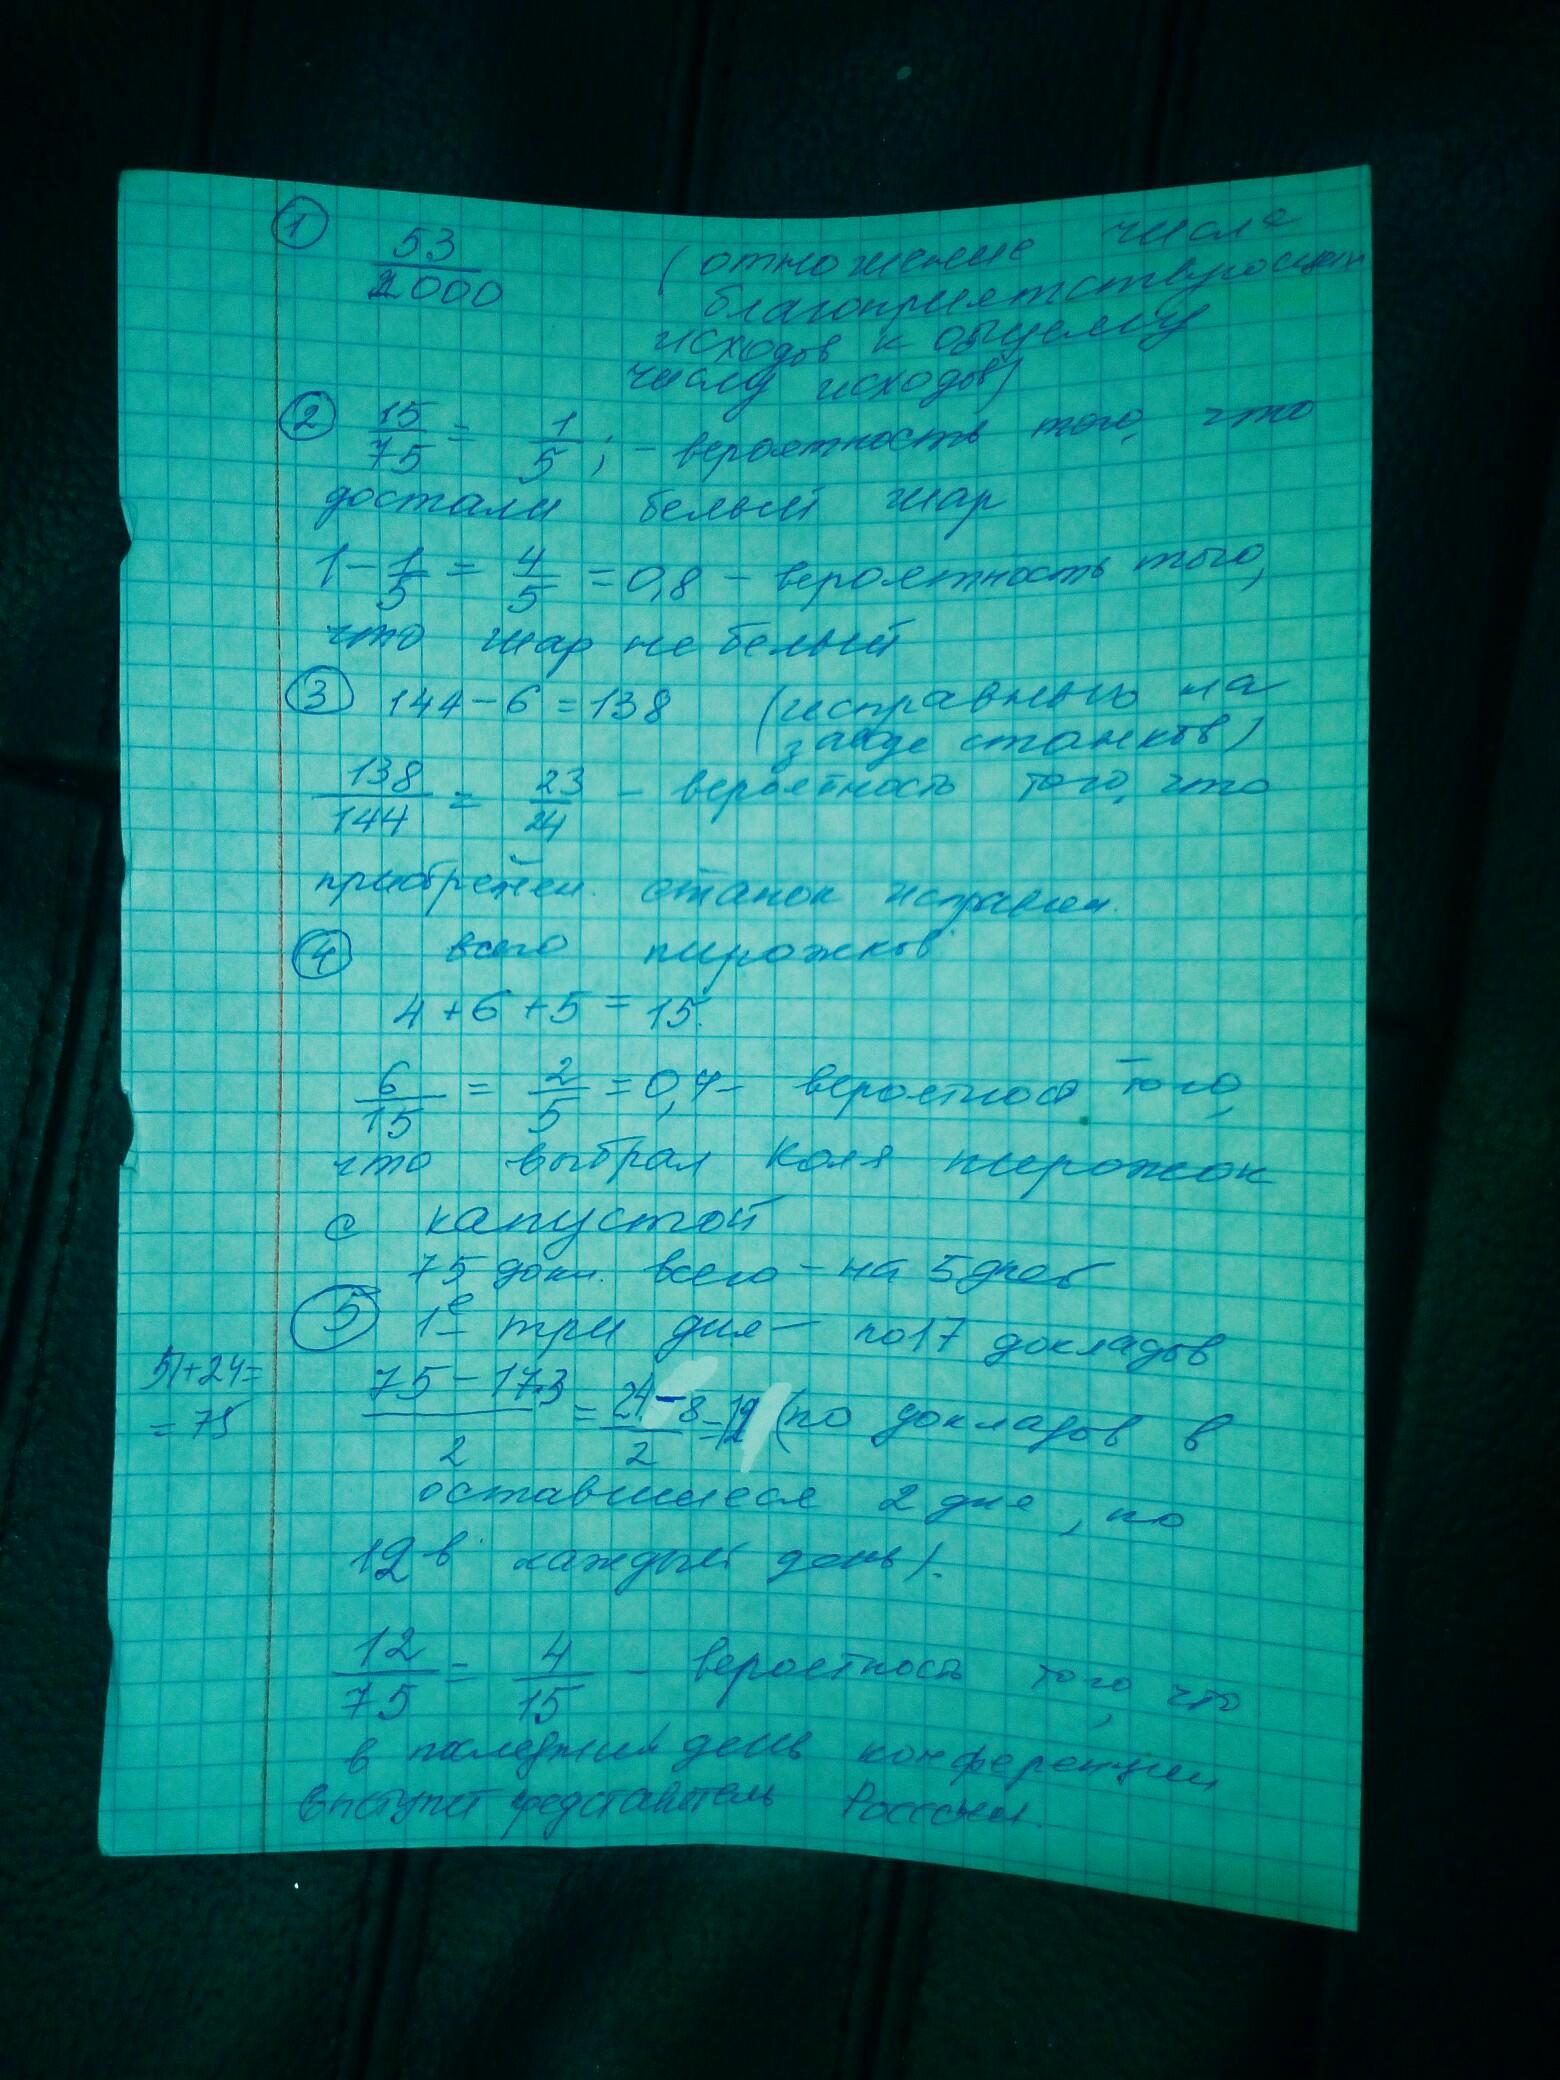 ① 53/2000 (отношение числа
благоприятствующих
исходов к общему
числу исходов)
② 15/75 = 1/5; - вероятность того, что
достали белый шар
1 - 1/5 = 4/5 = 0,8 - вероятность того,
что шар не белый
③ 144 - 6 = 138 (исправных на
заводе станков)
138/144 = 23/24 - вероятность того, что
приобретен. станок исправен.
④ всего пирожков
4 + 6 + 5 = 15.
6/15 = 2/5 = 0,4 - вероятность того,
что выбрал Коля пирожок
с капустой
75 докл. всего - на 5 дней
⑤ 1е три дня - по 17 докладов
51 + 24 =
= 75
75 - 17·3/2 = 24/2 = 12 (по докладов в
оставшиеся 2 дня, по
12 в каждый день).
12/75 = 4/15 - вероятность того, что
в последний день конференции
выступит представитель России.